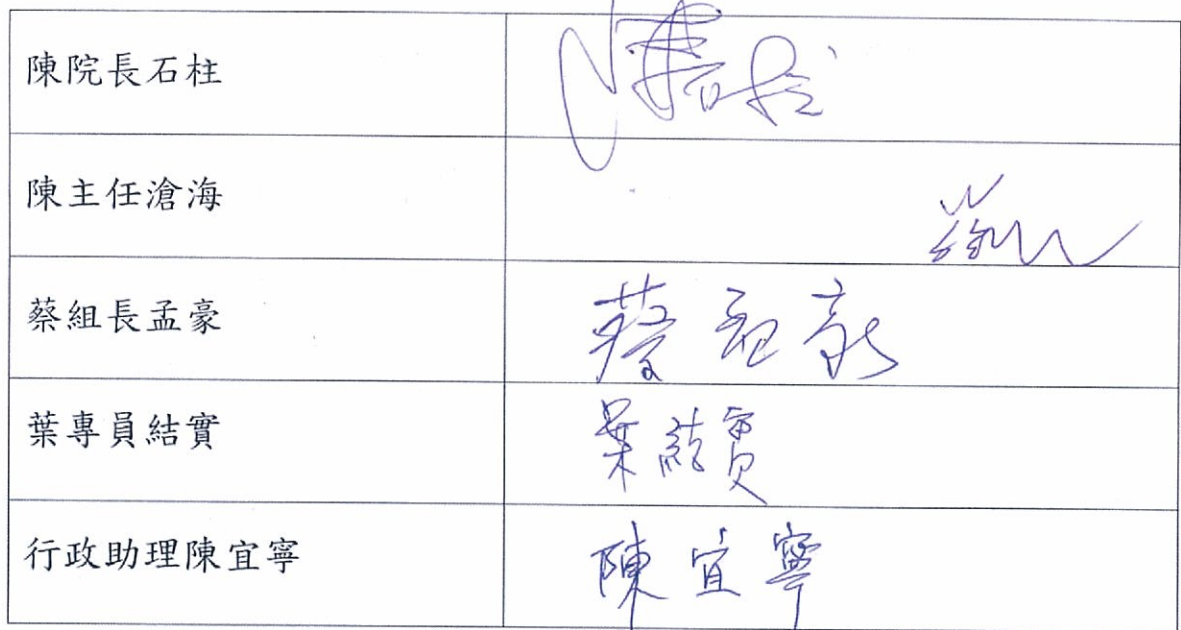 陳院長石柱
陳石柱
陳主任滄海
蔡組長孟豪
蔡孟豪
葉專員結實
葉結實
行政助理陳宜寧
陳宜寧